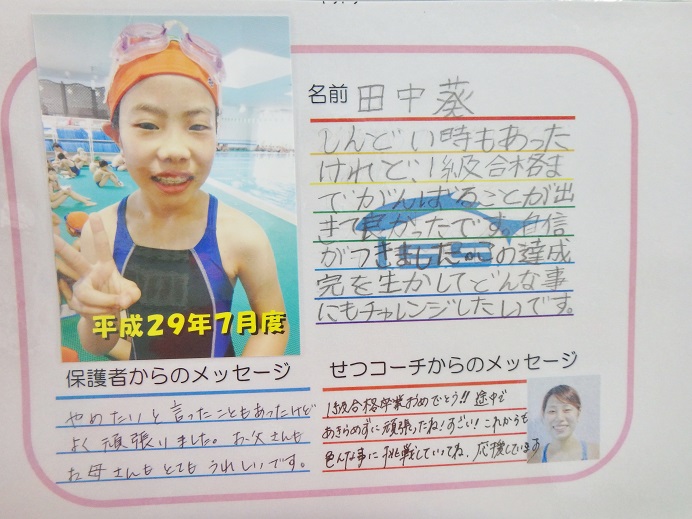 平成29年7月度
名前 田中葵
しんどい時もあった
けれど、1級合格ま
でがんばることが出
きて良かったです。自信
がつきました。この達成
完を生かしてどんな事
にもチャレンジしたいです。
保護者からのメッセージ
やめたいと言ったこともあったけど
よく頑張りました。お父さんも
お母さんもとてもうれしいです。
せつコーチからのメッセージ
1級合格卒業おめでとう!!途中で
あきらめずに頑張ったね!すごい!これからも
色んな事に挑戦していってね、応援しています